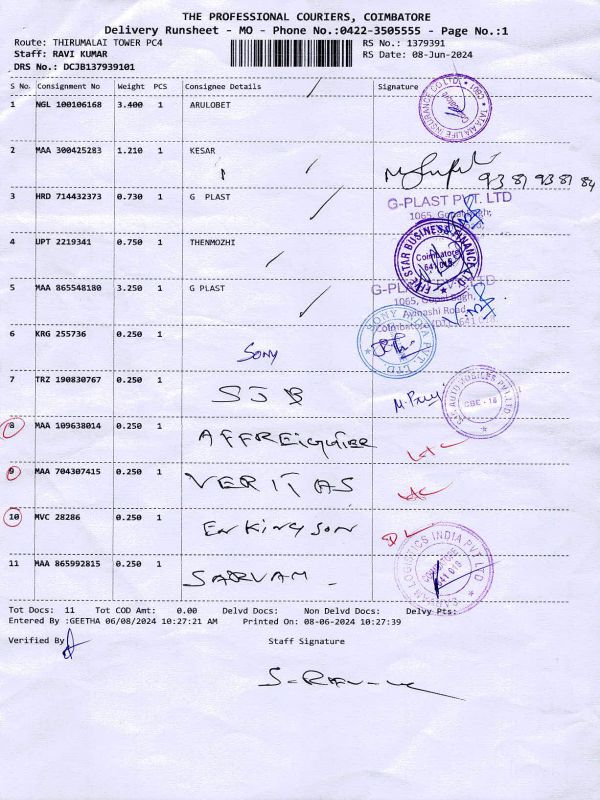 THE PROFESSIONAL COURIERS, COIMBATORE
Delivery Runsheet - MO - Phone No.:0422-3505555 - Page No.:1
Route: THIRUMALAI TOWER PC4
Staff: RAVI KUMAR
DRS No.: DCJB137939101
RS No.: 1379391
RS Date: 08-Jun-2024
S No. Consignment No Weight PCS Consignee Details Signature
1 NGL 100106168 3.400 1 ARULOBET
TATA AIA LIFE INSURANCE CO LTD
2 MAA 300425283 1.210 1 KESAR
93 87 93 87 84
3 HRD 714432373 0.730 1 G PLAST
G-PLAST PVT. LTD
1065, Gopal Bagh,
4 UPT 2219341 0.750 1 THENMOZHI
FIVE STAR BUSINESS FINANCE LTD
Coimbatore
641 018
5 MAA 865548180 3.250 1 G PLAST
G-PLAST PVT. LTD
1065, Gopal Bagh,
Avinashi Road,
Coimbatore (DT) 641 018
6 KRG 255736 0.250 1 SONY
SONY INDIA PVT. LTD.
7 TRZ 190830767 0.250 1 SJB
CBE - 18
8 MAA 109638014 0.250 1
9 MAA 704307415 0.250 1 VERITAS
10 MVC 28286 0.250 1 EnKingson
DL
11 MAA 865992815 0.250 1 SARVAM
LOGISTICS INDIA PVT LTD
641 018
Tot Docs: 11 Tot COD Amt: 0.00 Delvd Docs: Non Delvd Docs: Delvy Pts:
Entered By :GEETHA 06/08/2024 10:27:21 AM Printed On: 08-06-2024 10:27:39
Verified By Staff Signature